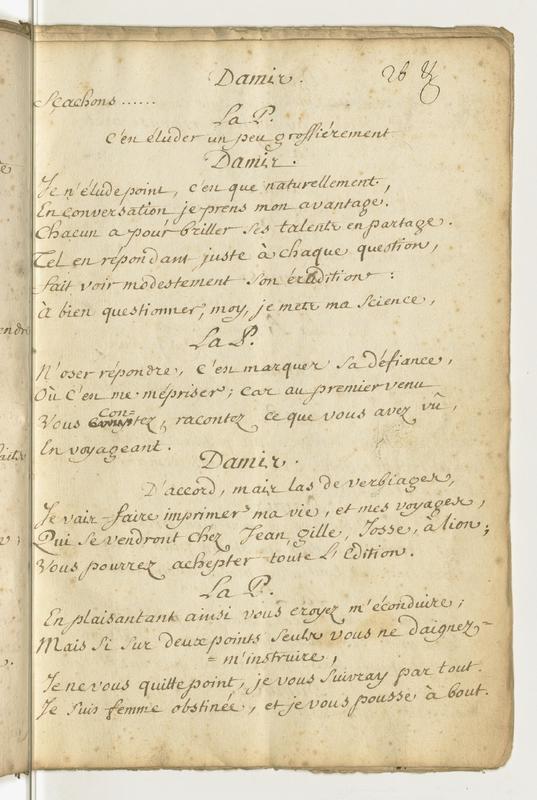 Damis. 26
Sçachons ......
La P.
C'en éluder un peu grossiérement
Damis.
Je n'élude point, c'en que naturellement,
En conversation je prens mon avantage.
Chacun a pour briller ses talents en partage.
Tel en répondant juste à chaque question,
fait voir modestement son érudition :
à bien questionner, moy, je mets ma science,
La P.
N'oser répondre, c'en marquer sa défiance,
Où c'en me mépriser ; car au premier venu
Con=
Vous tez, racontez ce que vous avez vû,
En voyageant.
Damis.
D'accord, mais las de verbiages,
Je vais faire imprimer ma vie, et mes voyages,
Qui se vendront chez Jean, gille, Josse, à lion ;
Vous pourrez achepter toute l'Edition.
La P.
En plaisantant ainsi vous croyez m'éconduire ;
Mais si sur deux points seuls vous ne daignez=
= m'instruire,
Je ne vous quitte point, je vous suivray par tout.
Je suis femme obstinée, et je vous pousse à bout.